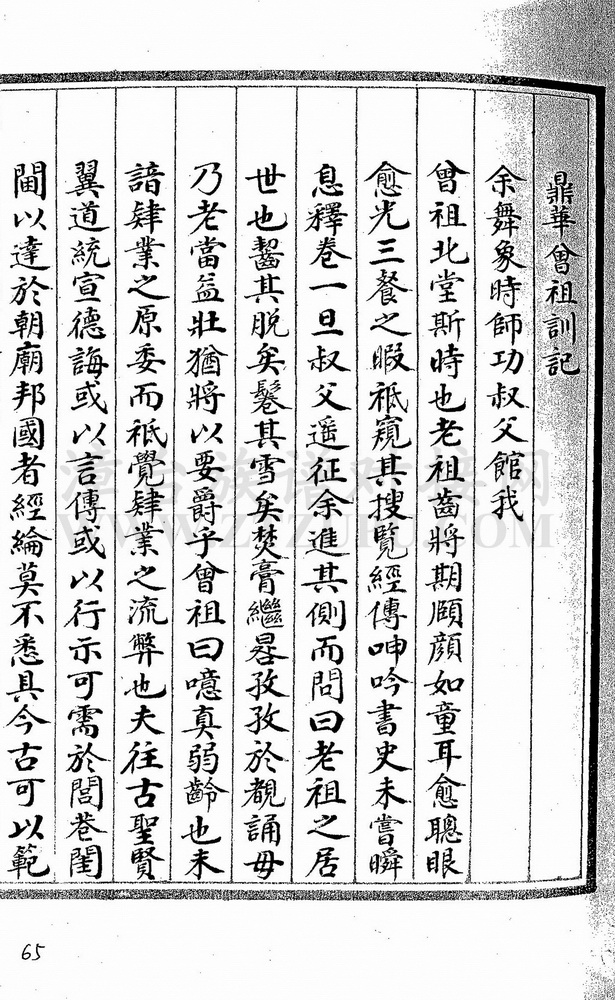 鼎華曾祖訓記
余舞象時師功叔父館我
曾祖北堂斯時也老祖齒將期頤顔如童耳愈聰眼
愈光三餐之暇祗窺其搜覽經傳呻吟書史未嘗瞬
息釋卷一旦叔父遥征余進其側而問曰老祖之居
世也齒其脱矣鬓其雪矣焚膏繼晷孜孜於覩誦毋
乃老當益壯猶將以要爵乎曾祖曰噫真弱齡也未
諳肄業之原委而祗覺肄業之流弊也夫往古聖賢
翼道統宣德誨或以言傳或以行示可需於閭巷閨
閫以達於朝廟邦國者經綸莫不悉具今古可以範
漳台族谱对接网
WWW.ZTZUPU.COM
65